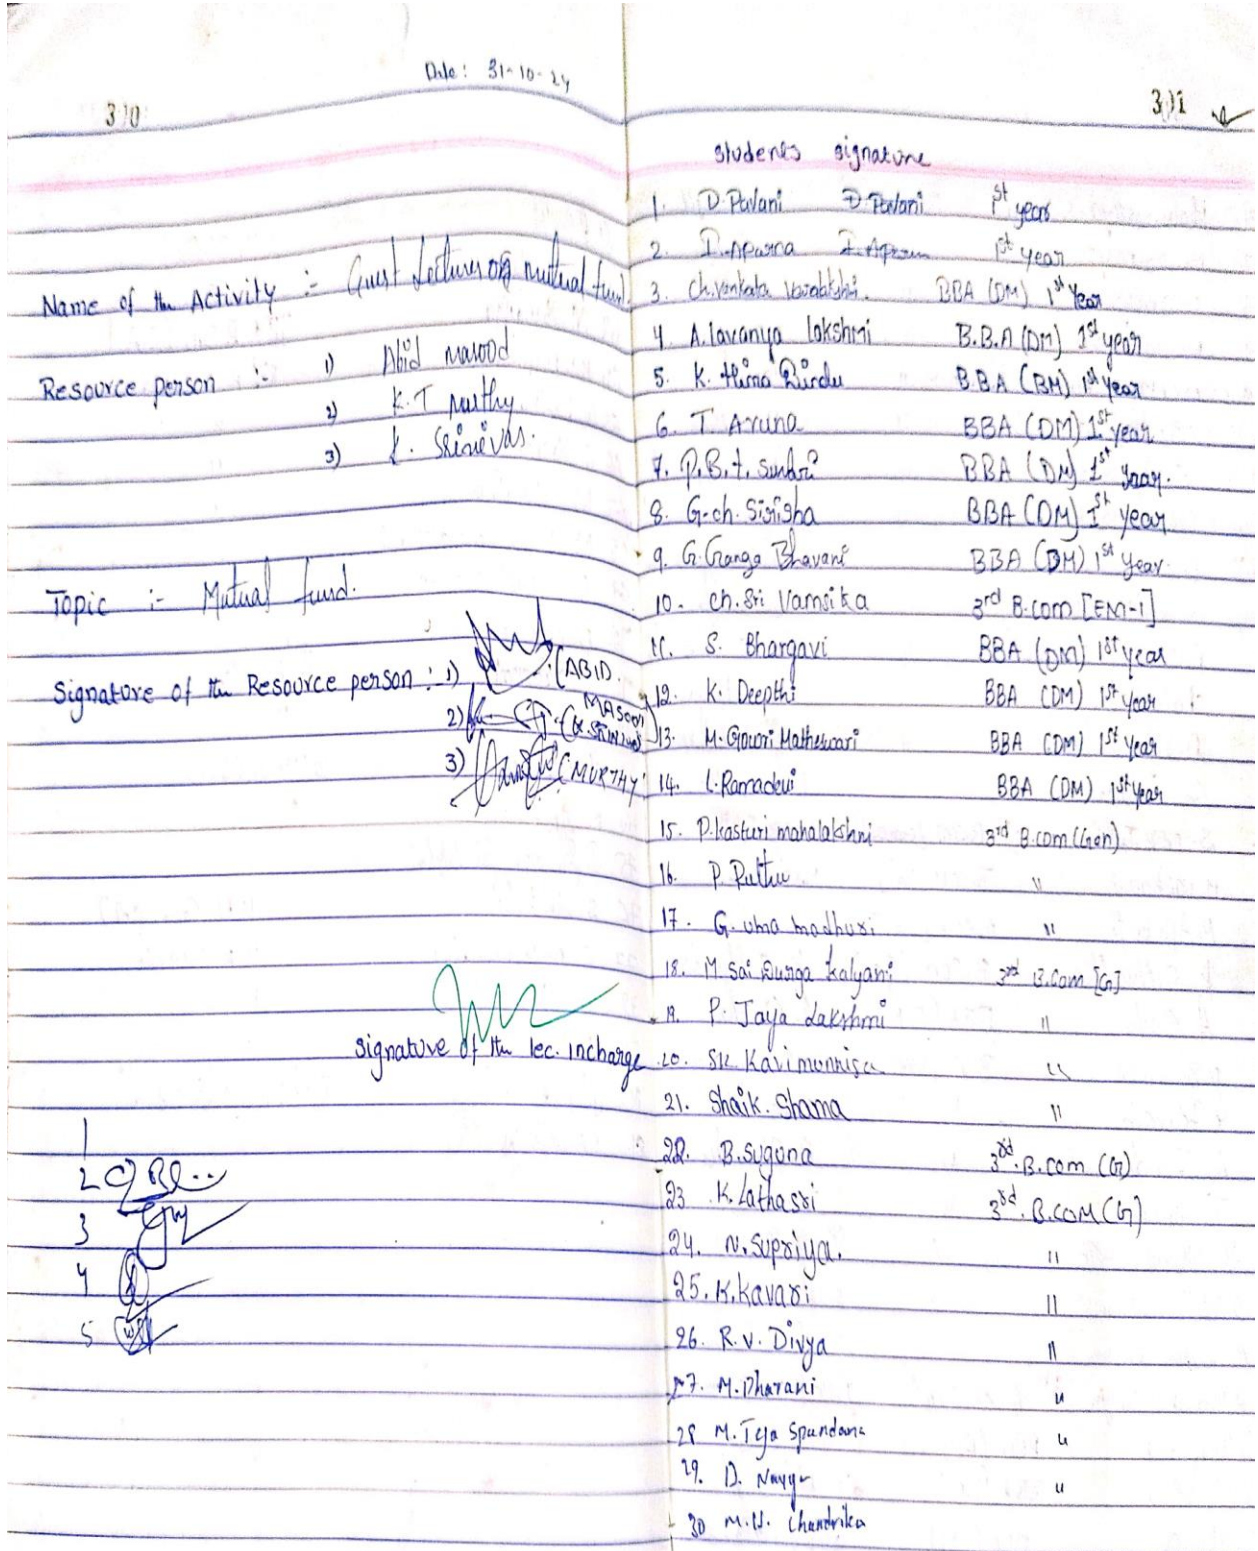 Date: 31-10-24
300
Name of the Activity :- Guest Lectures on mutual fund.
Resource person :- 1) Abid masood
2) K.T murthy
3) K. Srinivas.
Topic :- Mutual fund.
Signature of the Resource person :- 1) (ABID.
MASOOD)
2) (K. SRINIVAS)
3) (MURTHY)
signature of the lec. incharge
1
2
3
4
5
301
students signature
1. D. Pavani D. Pavani 1st year
2. I. Aparna I. Aparna 1st year
3. Ch. Venkata Varalakshmi. BBA (DM) 1st Year
4. A. lavanya lakshmi B.B.A (DM) 1st year
5. K. Hima Bindu B.BA (BM) 1st year
6. T Aruna BBA (DM) 1st year
7. P.B.t. Sundri BBA (DM) 1st year.
8. G.ch. Sirisha BBA (DM) 1st year
9. G. Ganga Bhavani BBA (DM) 1st year.
10. ch. Sri Vamsika 3rd B.com [EM-1]
11. S. Bhargavi BBA (DM) 1st year
12. K. Deepthi BBA (DM) 1st year
13. M. Gowri Matheswari BBA (DM) 1st year
14. L. Ramadevi BBA (DM) 1st year
15. P. kasturi mahalakshmi 3rd B.com (Gen)
16. P. "
17. G. uma madhuri "
18. M. Sai Durga Kalyani 3rd B.Com [G]
19. P. Jaya Lakshmi "
20. SK. Karimunnisa "
21. Shaik. Shama "
22. B. suguna 3rd. B.com (G)
23 K. Lathasri 3rd. B.COM (G)
24. N. Supriya. "
25. K. kavari "
26. R.V. Divya "
27. M. Dharani "
28 M. Teja Spandana "
29. D. "
30 M.H. Chandrika